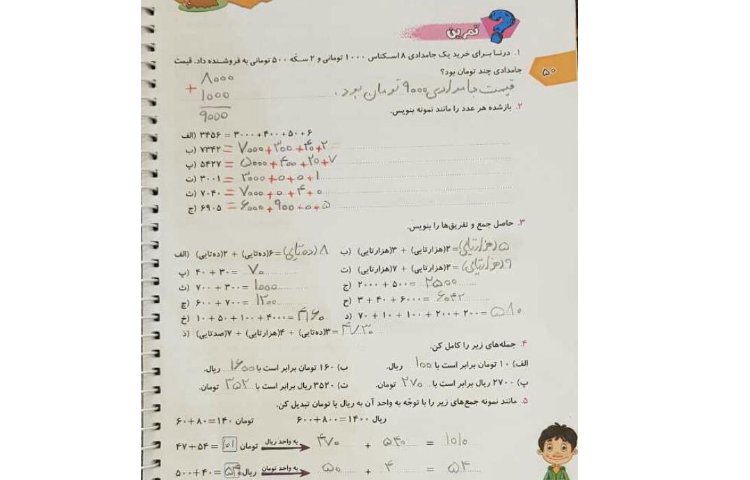 تمرین
۵۰
۱. درنـا بـرای خرید یک جامدادی ۸ اسکناس ۱۰۰۰ تومانی و ۲ سکّه ۵۰۰ تومانی به فروشـنده داد. قیمت
جامدادی چند تومان بود؟
۸۰۰۰
+ ۱۰۰۰
۹۰۰۰
قیمت جامدادی ۹۰۰۰ تومان بود.
۲. بازشده هر عدد را مانند نمونه بنویس.
الف) ۳۴۵۶ = ۳۰۰۰ + ۴۰۰ + ۵۰ + ۶
ب) ۷۳۴۲ = ۷۰۰۰ + ۳۰۰ + ۴۰ + ۲
پ) ۵۴۲۷ = ۵۰۰۰ + ۴۰۰ + ۲۰ + ۷
ت) ۳۰۰۱ = ۳۰۰۰ + ۰ + ۰ + ۱
ث) ۷۰۴۰ = ۷۰۰۰ + ۰ + ۴۰ + ۰
ج) ۶۹۰۵ = ۶۰۰۰ + ۹۰۰ + ۰ + ۵
۳. حاصل جمع و تفریق‌ها را بنویس.
الف) ۲(ده‌تایی) + ۶(ده‌تایی) = ۸ (ده‌تایی)
ب) ۳(هزارتایی) + ۲(هزارتایی) = ۵(هزارتایی)
پ) ۴۰ + ۳۰ = ۷۰
ت) ۷(هزارتایی) + ۲(هزارتایی) = ۹(هزارتایی)
ث) ۷۰۰ + ۳۰۰ = ۱۰۰۰
ج) ۲۰۰۰ + ۵۰۰ = ۲۵۰۰
چ) ۶۰۰ + ۷۰۰ =
ح) ۳ + ۴۰ + ۶۰۰۰ =
خ) ۱۰ + ۵۰ + ۱۰۰ + ۴۰۰۰ = ۴۱۶۰
د) ۷۰ + ۱۰ + ۱۰۰ + ۲۰۰ + ۲۰۰ = ۵۸۰
ذ) ۷(صدتایی) + ۴(هزارتایی) + ۳(ده‌تایی) = ۴۷۳۰
۴. جمله‌های زیر را کامل کن.
الف) ۱۰ تومان برابر است با ۱۰۰ ریال.
ب) ۱۶۰ تومان برابر است با ۱۶۰۰ ریال.
پ) ۲۷۰۰ ریال برابر است با ۲۷۰ تومان.
ت) ۳۵۲۰ ریال برابر است با ۳۵۲ تومان.
۵. مانند نمونه جمع‌های زیر را با توجّه به واحد آن به ریال یا تومان تبدیل کن.
۶۰+۸۰=۱۴۰ تومان
۶۰۰+۸۰۰=۱۴۰۰ ریال
۴۷+۵۴= ۱۰۱ تومان به واحد ریال ۴۷۰ + ۵۴۰ = ۱۰۱۰
۵۰۰+۴۰= ریال به واحد تومان ۵۰ + ۴ = ۵۴